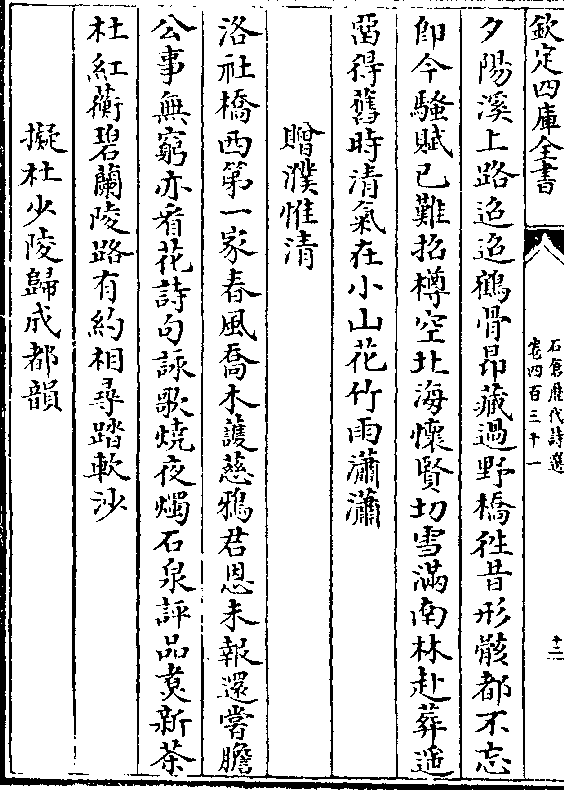 欽定四庫全書
石倉歷代詩選
卷四百三十一
十二
夕陽溪上路迢迢鶴骨昂藏過野橋徃昔形骸都不忘
即今騷賦已難招樽空北海懷賢切雪滿南林赴葬遥
畱得舊時清氣在小山花竹雨瀟瀟
贈濮惟清
洛社橋西第一家春風喬木護慈鴉君恩未報還嘗膽
公事無窮亦看花詩句詠歌燒夜燭石泉評品煑新茶
杜紅蘅碧蘭陵路有約相尋踏軟沙
擬杜少陵歸成都韻